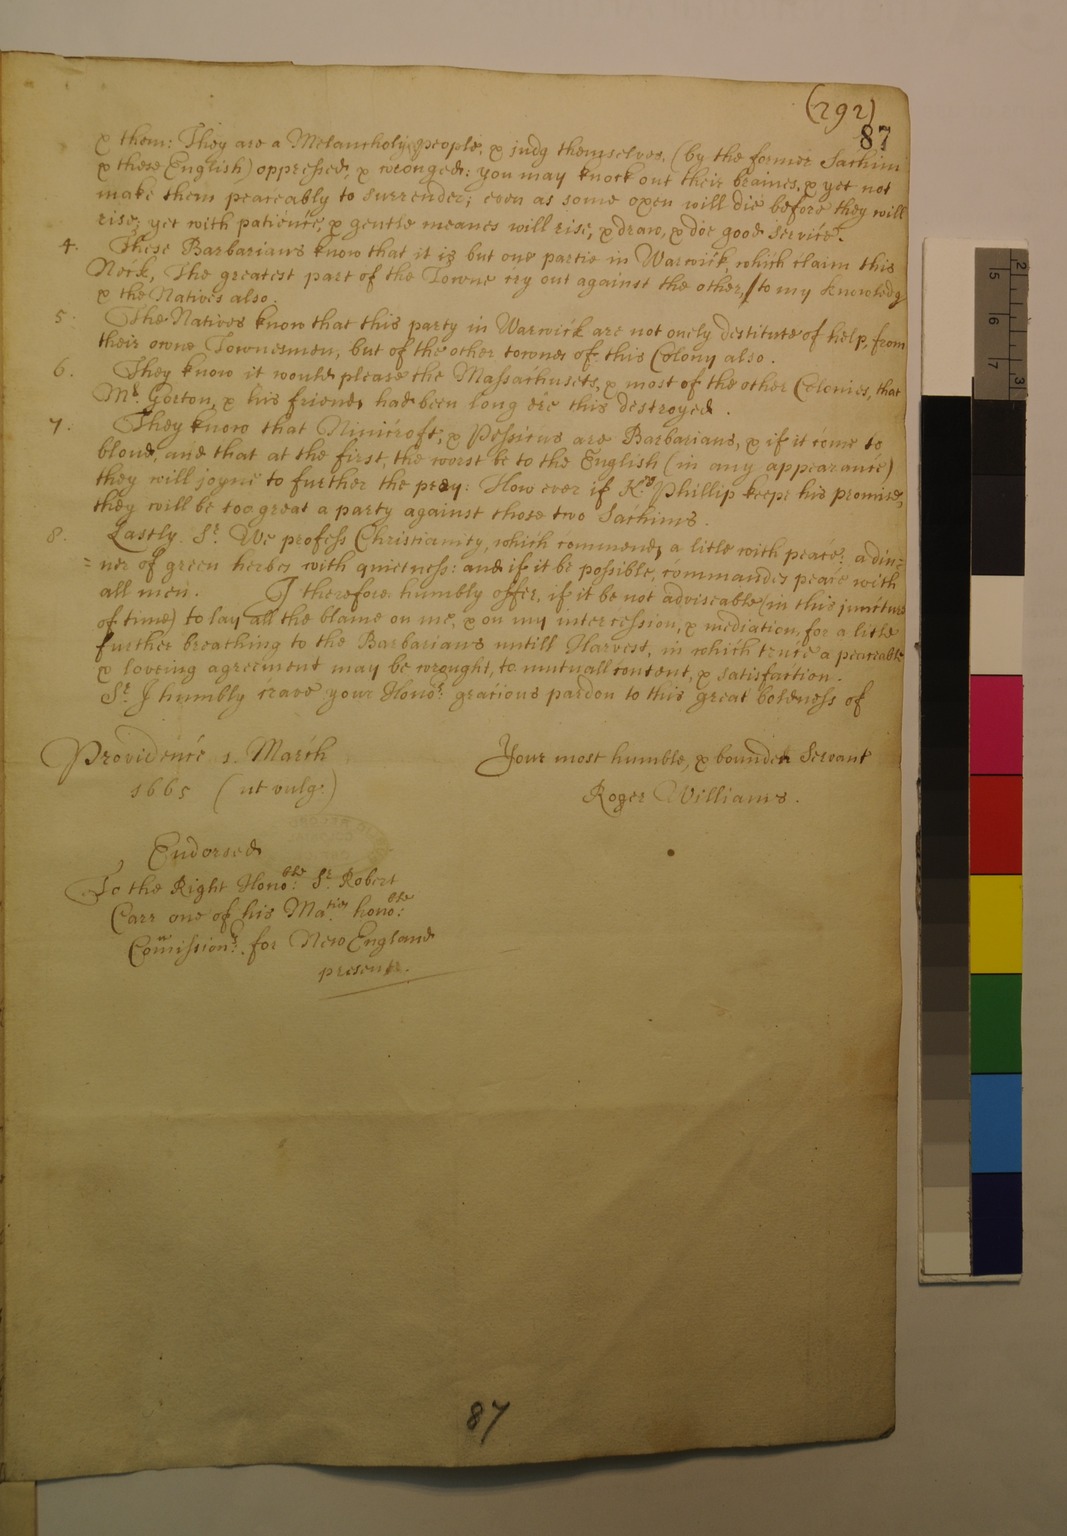 (292)
87
& them: They are a Melancholy people, & judg themselves, (by the former Sachim
& these English) oppressed, & wronged: you may knock out their braines, & yet not
make them peaceably to surrender; even as some oxen will die before they will
rise; yet with patience, & gentle meanes will rise, & draw, & doe good service.
4. These Barbarians know that it is but one partie in Warwick, which claim this
Neck, The greatest part of the Towne cry out against the other, to my knowledg
& the Natives also.
5. The Natives know that this party in Warwick are not onely destitute of help, from
their owne Townesmen, but of the other townes of this Colony also.
6. They know it would please the Massachusets, & most of the other Colonies, that
Mr. Gorton, & his friends had been long ere this destroyed.
7. They know that Ninicroft, & Pessicus are Barbarians, & if it come to
bloud, and that at the first, the worst be to the English (in any appearance)
they will joyne to further the prey: However if K. Phillip keepe his promise,
they will be too great a party against those two Sachims.
8. Lastly Sr. We profess Christianity, which commends a litle with peace: a din=
=ner of green herbes with quietness: and if it be possible, commandes peace with
all men. I therefore humbly offer, if it be not adviseable (in this juncture
of time) to lay all the blame on me, & on my intercession, & mediation, for a litle
further breathing to the Barbarians untill Harvest, in which truce a peaceable
& loveing agreement may be wrought, to mutuall content, & satisfaction.
Sr. I humbly crave your Honors. gracious pardon to this great boldness of
Providence 1. March
1665 (ut vulg:)
Your most humble, & bounden Servant
Roger Williams.
Endorsed
To the Right Honoble: Sr. Robert
Carr one of his Maties honoble:
Comissionrs. for New England
presente.
87
5
6
7
2
3